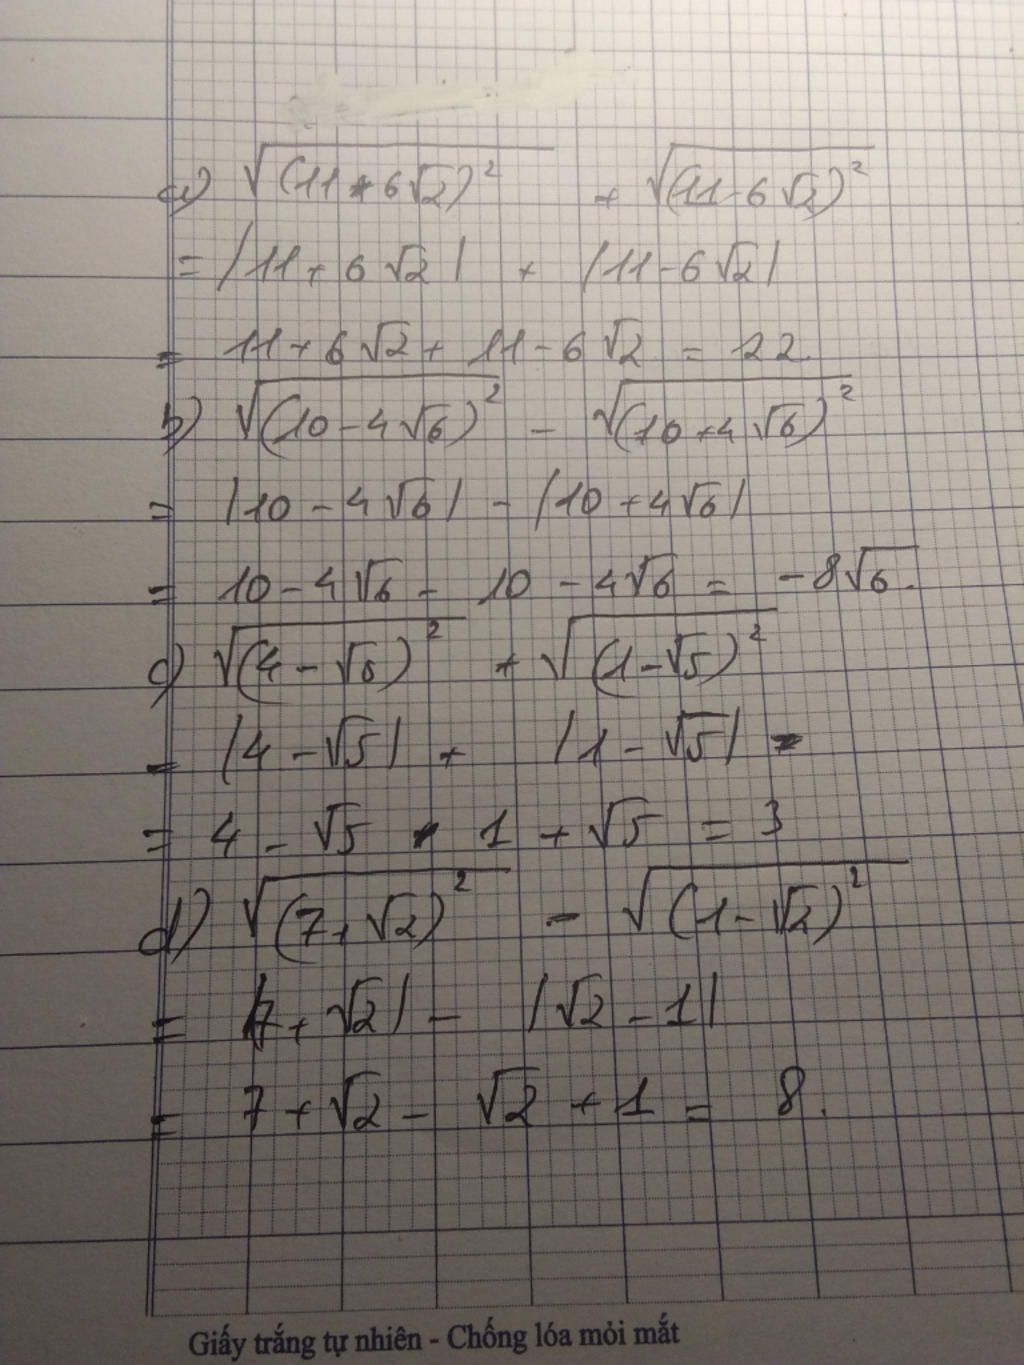 a) √(11+6√2)² + √(11-6√2)²
= |11+6√2| + |11-6√2|
= 11+6√2+ 11-6√2 = 22.
b) √(10-4√6)² - √(10+4√6)²
= |10-4√6| - |10+4√6|
= 10-4√6 - 10-4√6 = -8√6.
c) √(4-√6)² + √(1-√5)²
= |4-√5| + |1-√5|
= 4-√5 - 1+√5 = 3
d) √(7+√2)² - √(1-√2)²
= |7+√2| - |√2-1|
= 7+√2- √2+1 = 8.
Giấy trắng tự nhiên - Chống lóa mỏi mắt